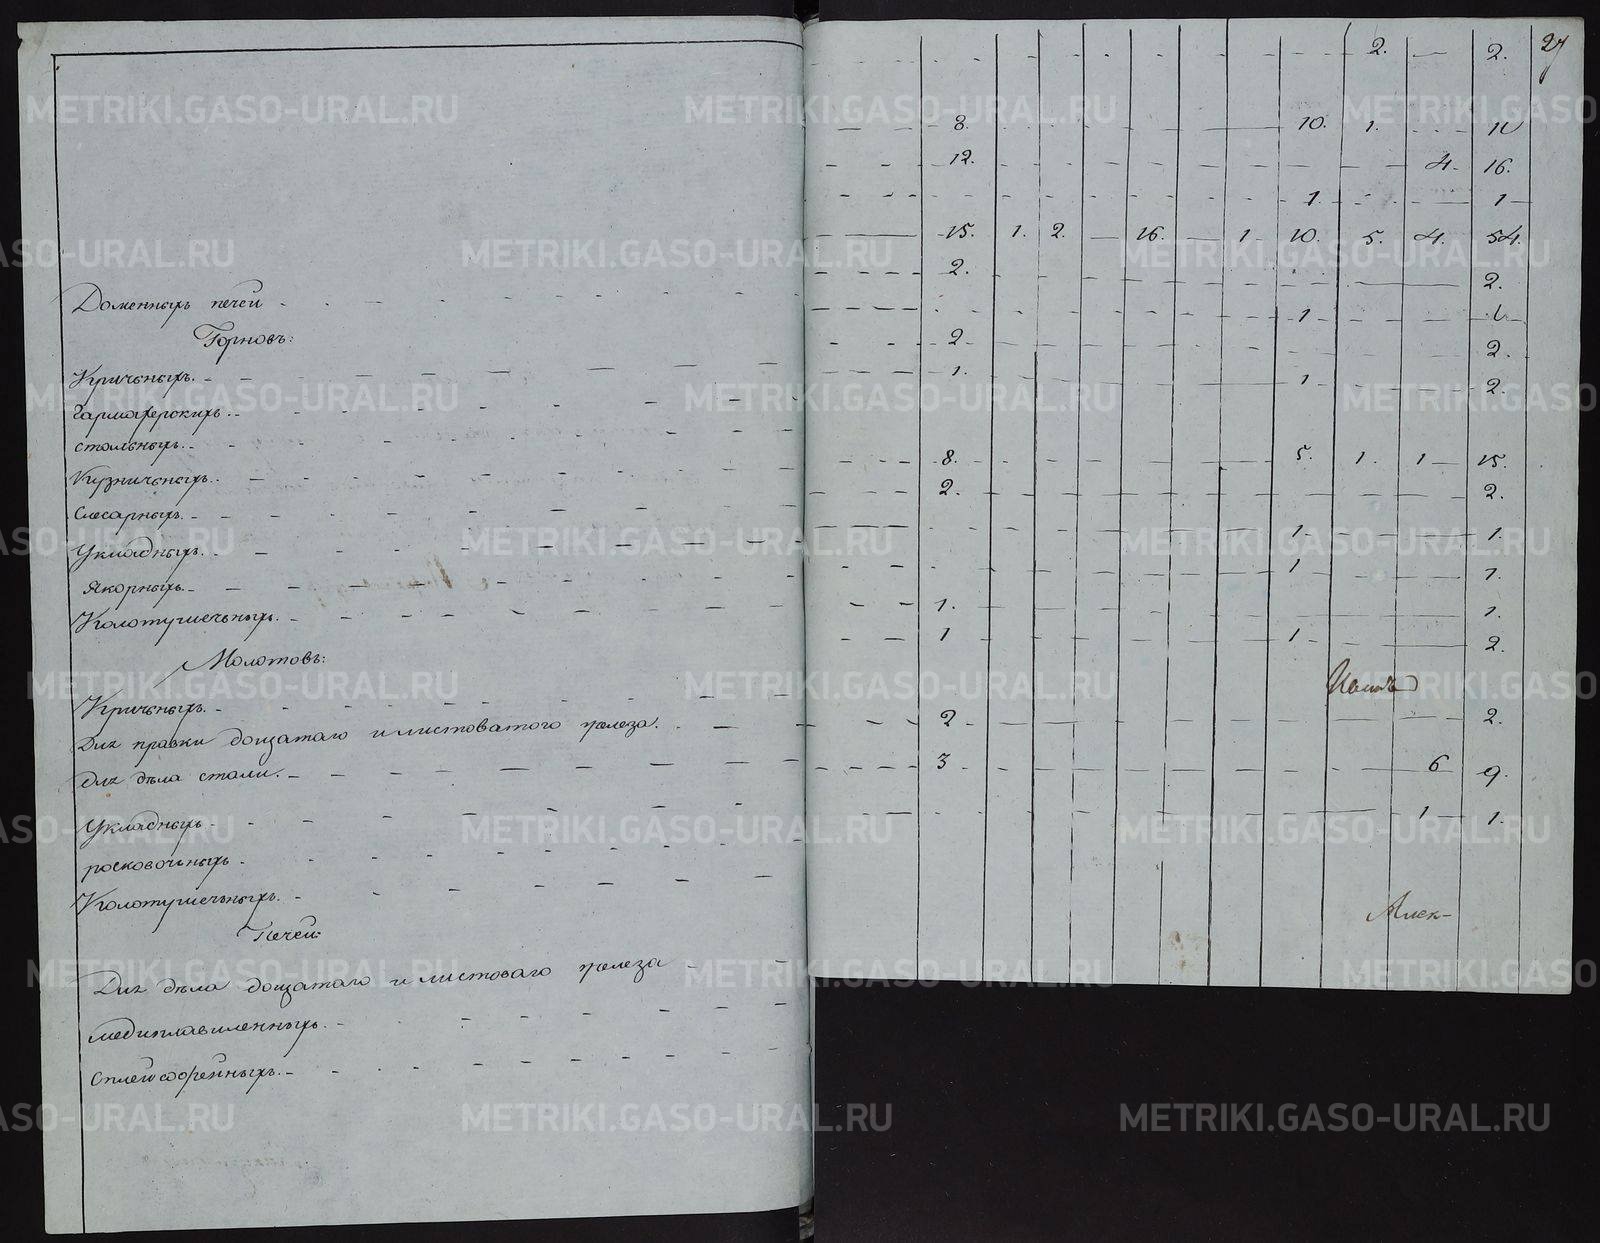 Доменныхъ печей
Горновъ:
Кричныхъ.
Гармахерскихъ.
стальныхъ.
Кузничныхъ.
Слесарныхъ.
Укладныхъ.
Якорныхъ.
Колотушечныхъ.
Молотовъ:
Кричныхъ.
Для правки дощатаго и листоватого железа.
для дѣла стали.
Укладныхъ
росковочныхъ
Колотушечныхъ.
Печей:
Для дѣла дощатаго и листоваго железа
медиплавиленныхъ.
Сплейсофенныхъ.
27
2. 2.
8. 10. 1. 11
12. 4. 16.
1. 1
15. 1. 2. 16. 1 10. 5. 4. 54.
2. 2.
1
2 2.
1. 1 2.
8. 5. 1. 1 15.
2. 2.
1 1.
1 1.
1. 1.
1 1 2.
2 2.
3 6 9.
1 1.
Алек-
METRIKI.GASO-URAL.RU